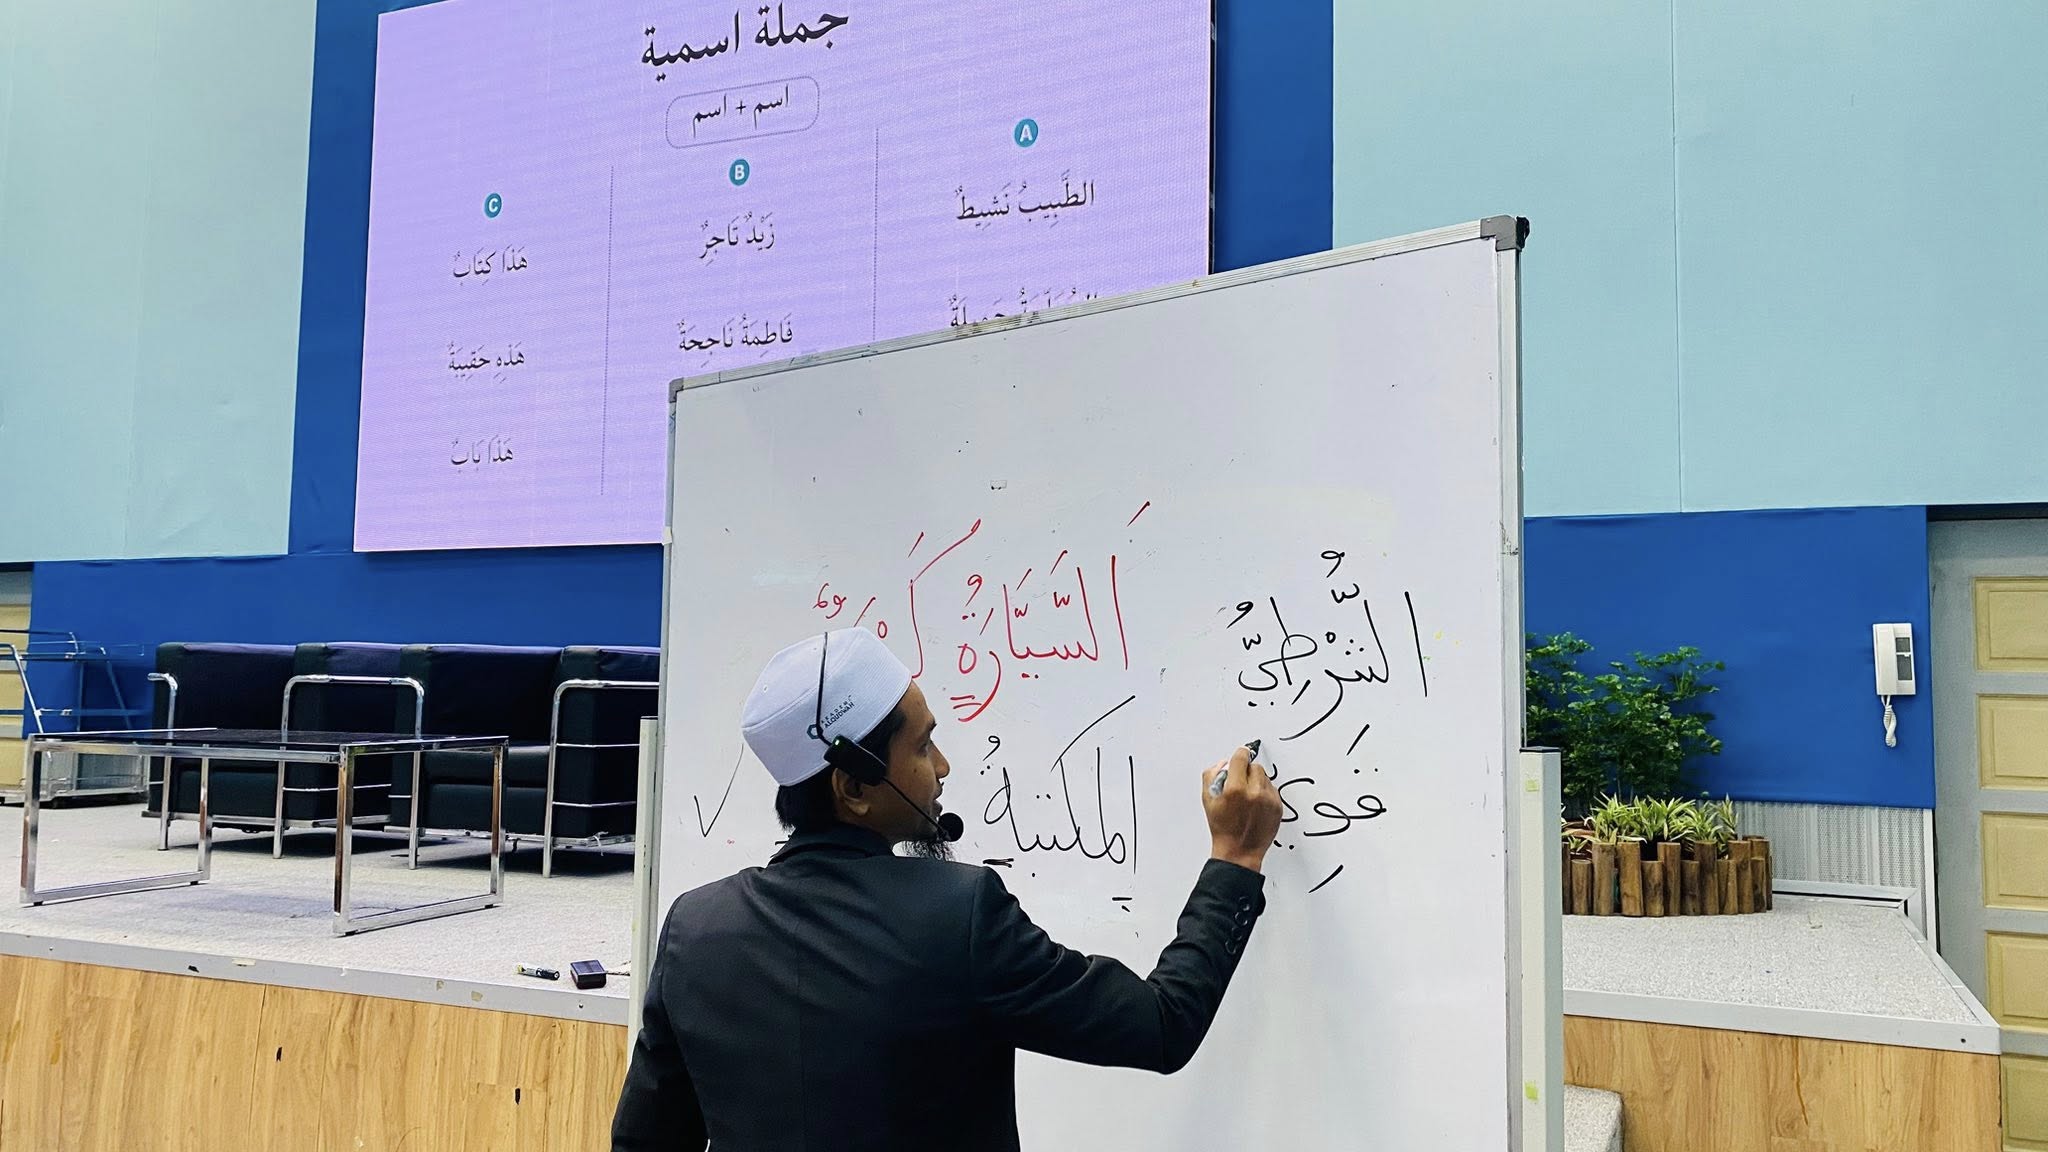 جملة اسمية
اسم + اسم
A
الطَّبِيبُ نَشِيطٌ
B
زَيْدٌ تَاجِرٌ
فَاطِمَةُ نَاجِحَةٌ
C
هَذَا كِتَابٌ
هَذِهِ حَقِيبَةٌ
هَذَا بَابٌ
الشُّرْطِيُّ
قَوِي
اَلسَّيَّارَةُ
اِلمكتبةُ
AKADEMI
ALQUDWAH